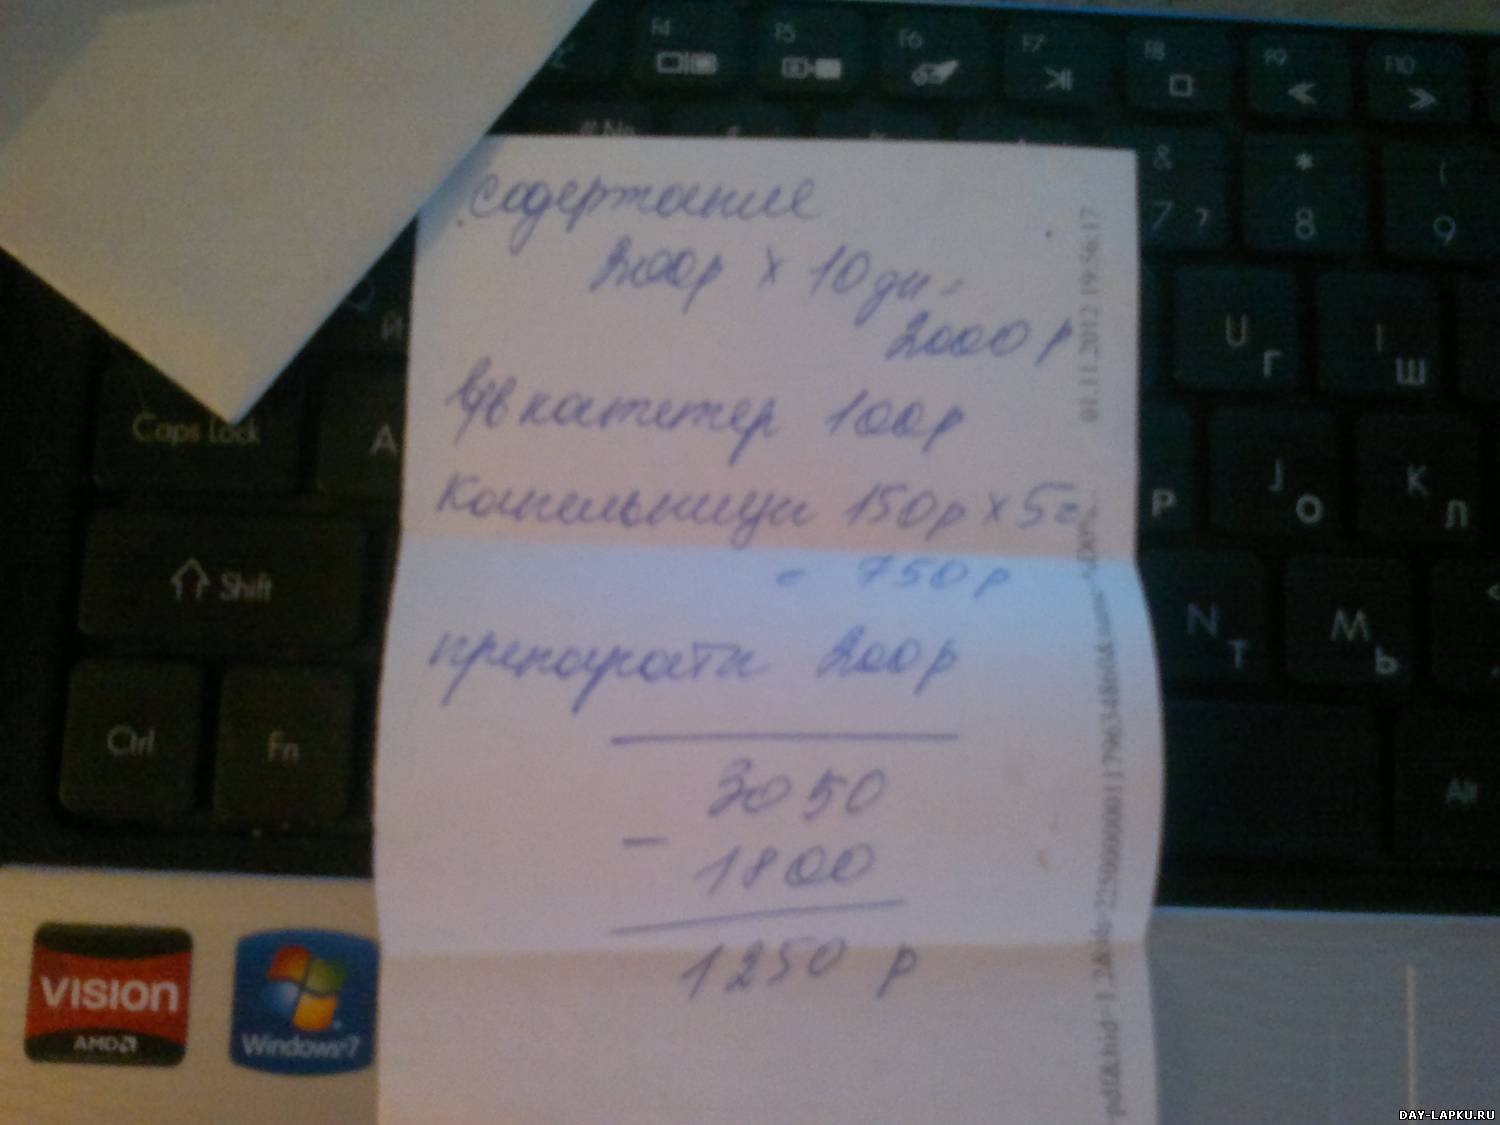 F4
F5
F6
F7
F8
F9
F10
содержание
200р х 10 дн =
2000 р
в/в катетер 100р
капельницы 150р х 5 =
= 750 р
препараты 200р
3050
- 1800
1250 р
01.11.2012 19:56:17
& 7 ?
* 8
( 9
U Г
I Ш
J О
K Л
Р
N Т
M Ь
Caps Lock
A
Shift
Ctrl
Fn
Alt
VISION
AMD
Windows 7
DAY-LAPKU.RU